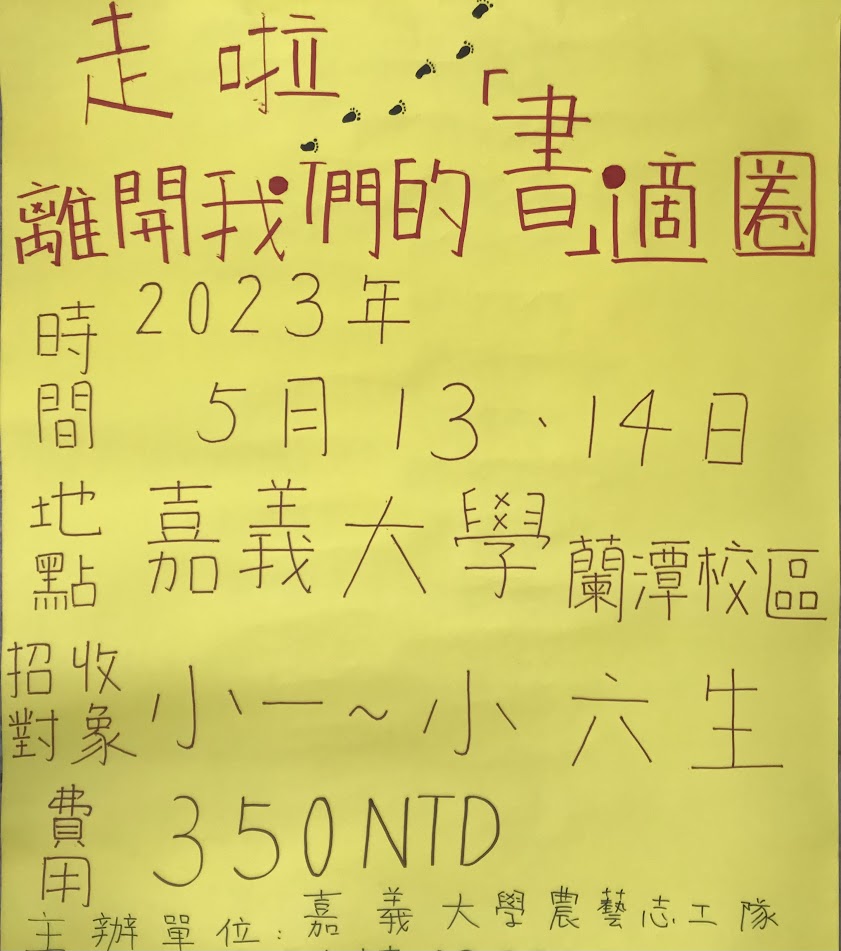 走啦
離開我們的「書」適圈
時間 2023年
5月13、14日
地點 嘉義大學 蘭潭校區
招收對象 小一~小六生
費用 350NTD
主辦單位:嘉義大學農藝志工隊